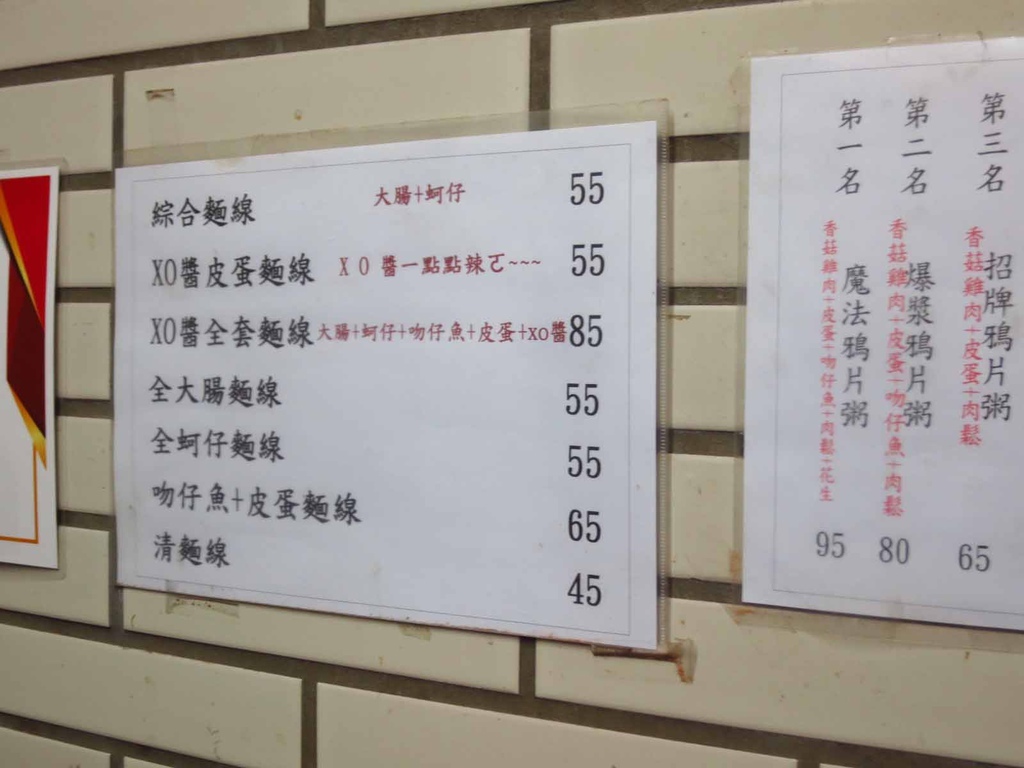 綜合麵線 大腸+蚵仔 55
XO醬皮蛋麵線 XO醬一點點辣ㄛ~~~ 55
XO醬全套麵線 大腸+蚵仔+吻仔魚+皮蛋+XO醬 85
全大腸麵線 55
全蚵仔麵線 55
吻仔魚+皮蛋麵線 65
清麵線 45
第三名 招牌鴉片粥
香菇雞肉+皮蛋+肉鬆
65
第二名 爆漿鴉片粥
香菇雞肉+皮蛋+吻仔魚+肉鬆
80
第一名 魔法鴉片粥
香菇雞肉+皮蛋+吻仔魚+肉鬆+花生
95